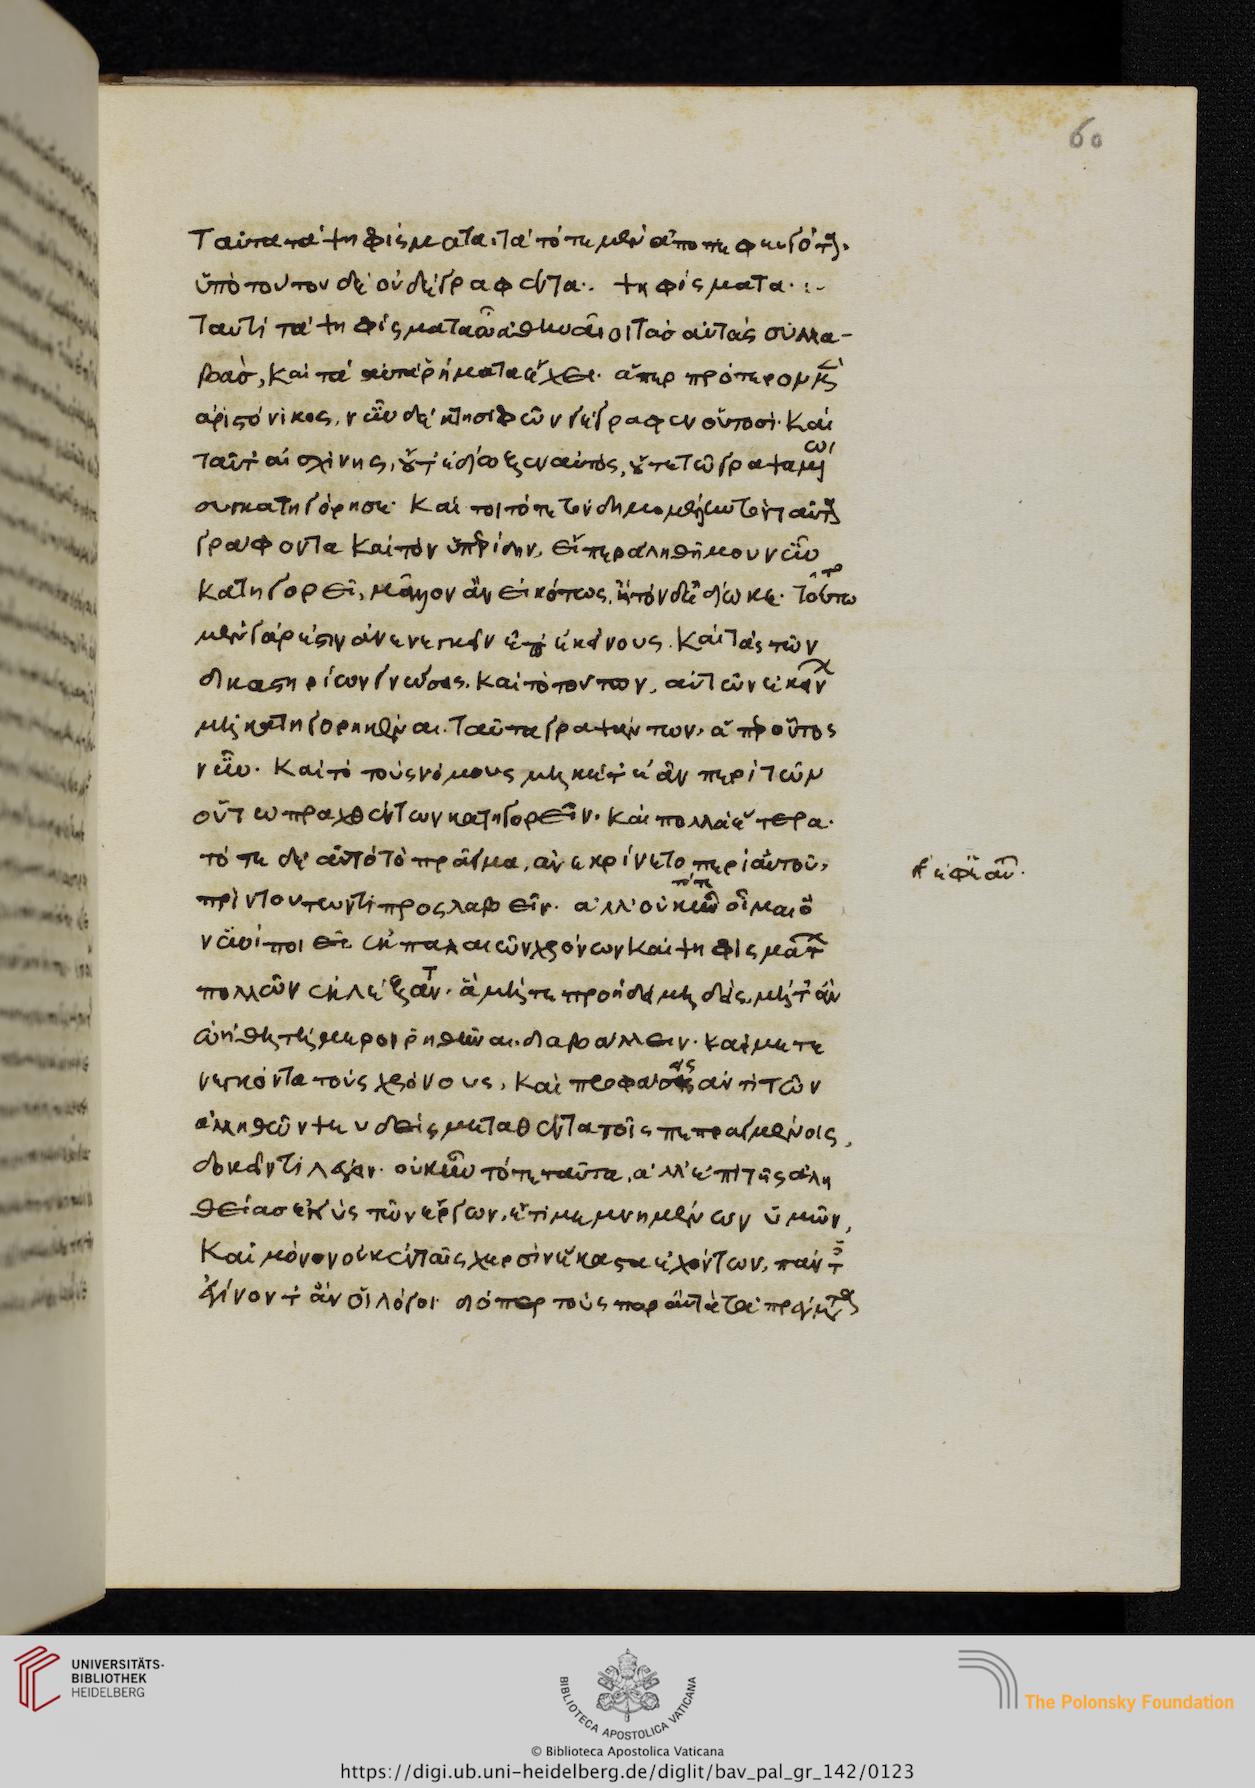 60
Ταῦτα τὰ ψηφίσματα τὰ τότε μὲν ἀποπεφευγότα
ὑπὸ τούτου δὲ οὐδὲ γραφέντα. ψηφίσματα.
Ταυτὶ τὰ ψηφίσματα ὦ ἄνδρες ἀθηναῖοι τὰς αὐτὰς συλλα-
βὰς, καὶ τὰ αὐτὰ ῥήματα ἔχει. ἅπερ πρότερον μὲν
ἀριστόνικος, νῦν δὲ κτησιφῶν γέγραφεν οὑτοσί. Καὶ
ταῦτ' αἰσχίνης, οὔτ' ἐδίωξεν αὐτὸς, οὔτε τῷ γραψαμένωι
συγκατηγόρησε. Καίτοι τότε τὸν δημομέλη τὸν ταῦτα
γράφοντα καὶ τὸν ὑπερίδην, εἴπερ ἀληθῆ μου νῦν
κατηγορεῖ, μᾶλλον ἂν εἰκότως, ἢ τόνδ' ἐδίωκε.
μὲν γὰρ ἔστιν ἀνενεγκεῖν ἐπ' ἐκείνους. Καὶ τὰς τῶν
δικαστηρίων γνώσεις. Καὶ τὸ τοῦτον, αὐτὸν ἐκείνων
μὴ κατηγορηκέναι. Ταῦτα γραψάντων, ἅπερ οὗτος
νῦν. Καὶ τὸ τοὺς νόμους μηκέτ' ἐᾶν περὶ τῶν
οὕτω πραχθέντων κατηγορεῖν. Καὶ πολλὰ ἕτερα.
τότε δὲ αὐτὸ τὸ πρᾶγμα, ἂν ἐκρίνετο περὶ αὑτοῦ,
πρίν τι τούτων προσλαβεῖν. ἀλλ' οὐκ ἦν οἶμαι τότε ὃ
νυνὶ ποιεῖ ἐκ παλαιῶν χρόνων καὶ ψηφισμάτων
πολλῶν ἐκλέξαντα. ἃ μήτε προῄδει μηδεὶς, μήτ' ἂν
ὠήθη τήμερον ῥηθῆναι, διαβάλλειν. καὶ μετε
νεγκόντα τοὺς χρόνους, καὶ προφάσεις ἀντὶ τῶν
ἀληθῶν ψευδεῖς μεταθέντα τοῖς πεπραγμένοις,
δοκεῖν τι λέγειν. οὐκ ἦν τότε ταῦτα, ἀλλ' ἐπὶ τῆς ἀλη
θείας ἐγγὺς τῶν ἔργων, ἔτι μεμνημένων ὑμῶν,
Καὶ μόνον οὐκ ἐν ταῖς χερσὶν ἕκαστα ἐχόντων, πάντες
ἐγίνοντ' ἂν οἱ λόγοι διόπερ τοὺς παρ' αὐτὰ τὰ πράγματα
UNIVERSITÄTS-
BIBLIOTHEK
HEIDELBERG
BIBLIOTECA APOSTOLICA VATICANA
The Polonsky Foundation
© Biblioteca Apostolica Vaticana
https://digi.ub.uni-heidelberg.de/diglit/bav_pal_gr_142/0123